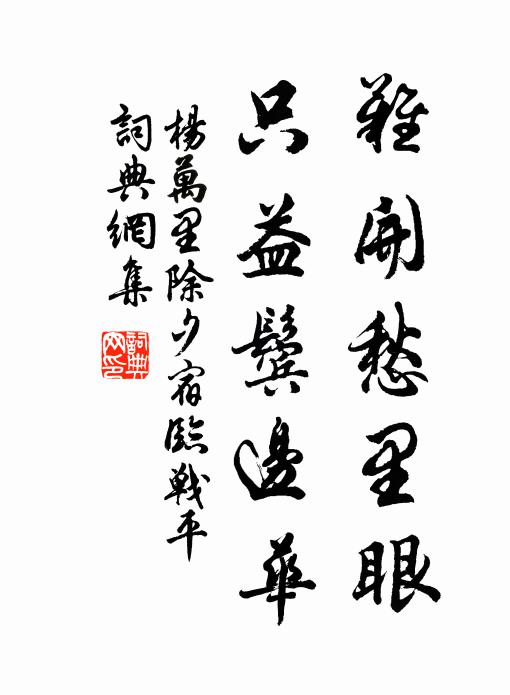 難開愁里眼
只益鬢邊華
楊萬里除夕宿臨戰平
詞典網集
詞典網印